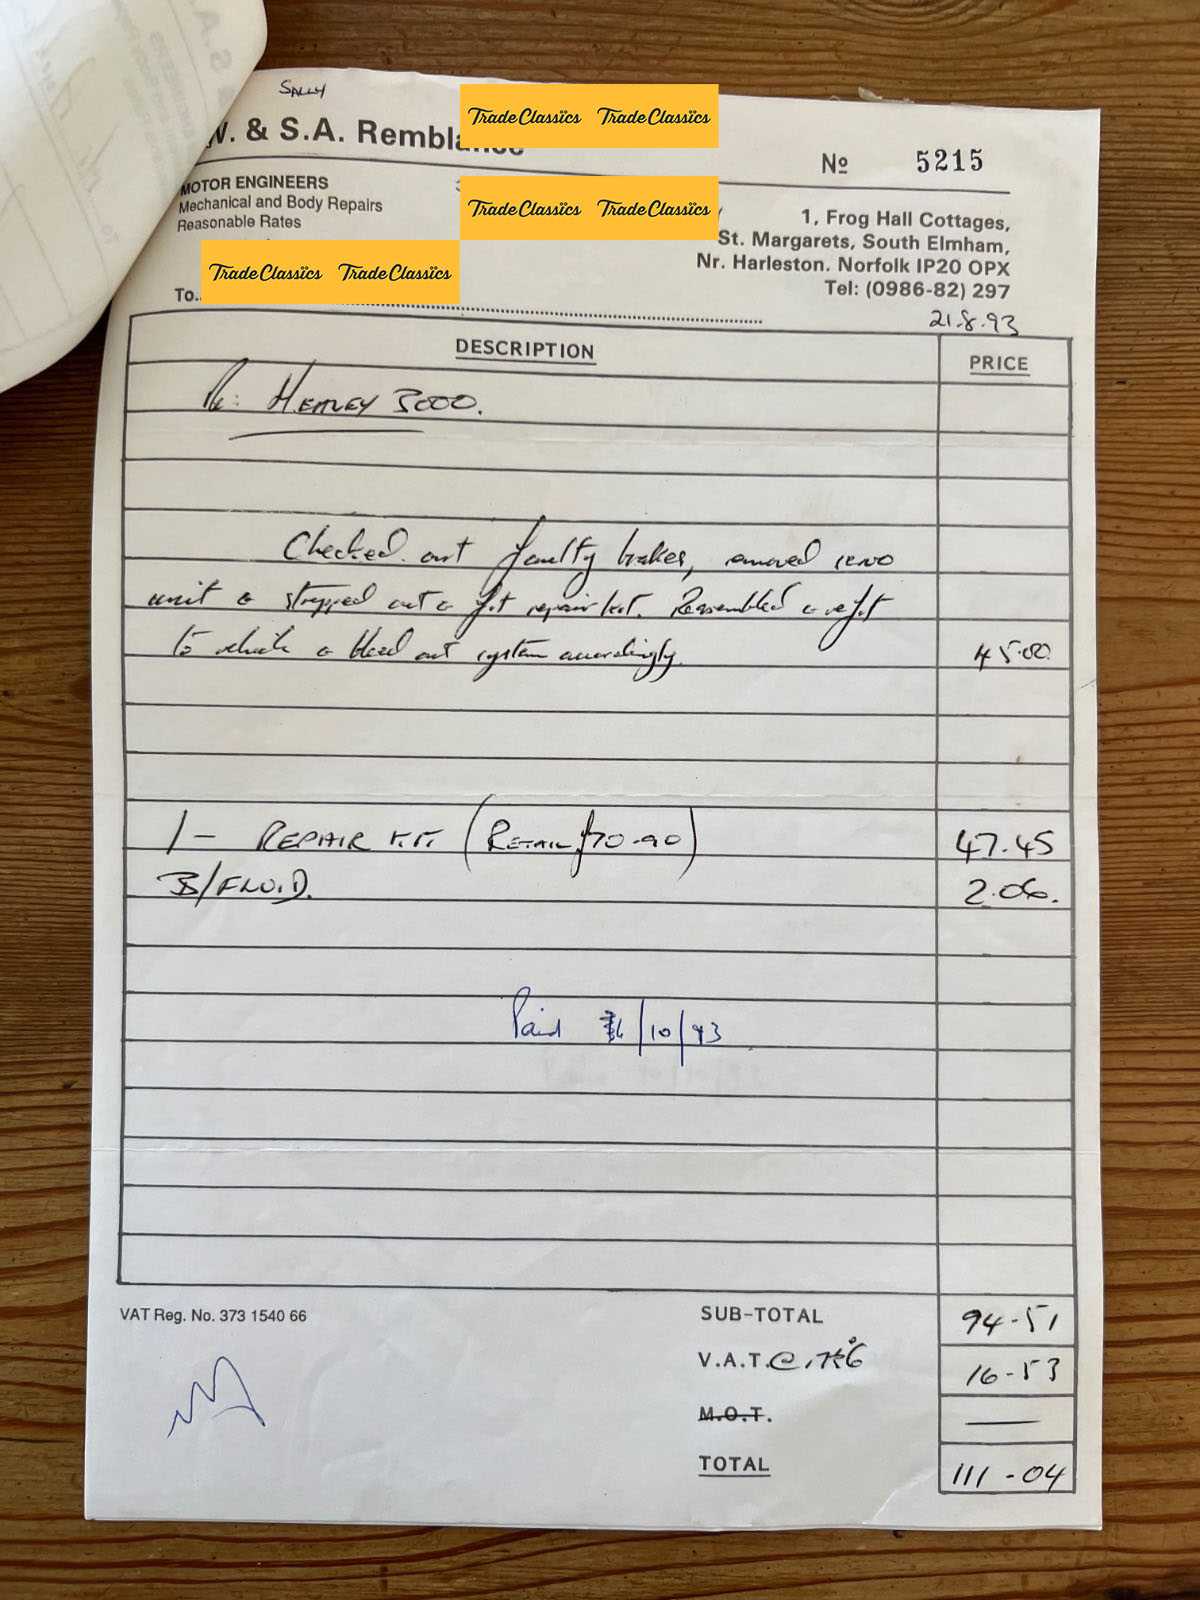 SALLY
W. & S.A. Remblance
Nº 5215
MOTOR ENGINEERS
Mechanical and Body Repairs
Reasonable Rates
TradeClassics TradeClassics
TradeClassics TradeClassics
TradeClassics TradeClassics
1, Frog Hall Cottages,
St. Margarets, South Elmham,
Nr. Harleston. Norfolk IP20 OPX
Tel: (0986-82) 297
To..
21.8.93
DESCRIPTION PRICE
Re: HEALEY 3000.
Checked out faulty brakes, removed servo
unit & stripped out & fit repair kit. Reassembled & refit
to vehicle & bleed out system accordingly. 45.00
1 - REPAIR KIT (RETAIL £70-90) 47.45
B/FLUID. 2.06.
Paid /10/93
VAT Reg. No. 373 1540 66
SUB-TOTAL 94-51
V.A.T. @ 16-53
M.O.T. —
TOTAL 111-04